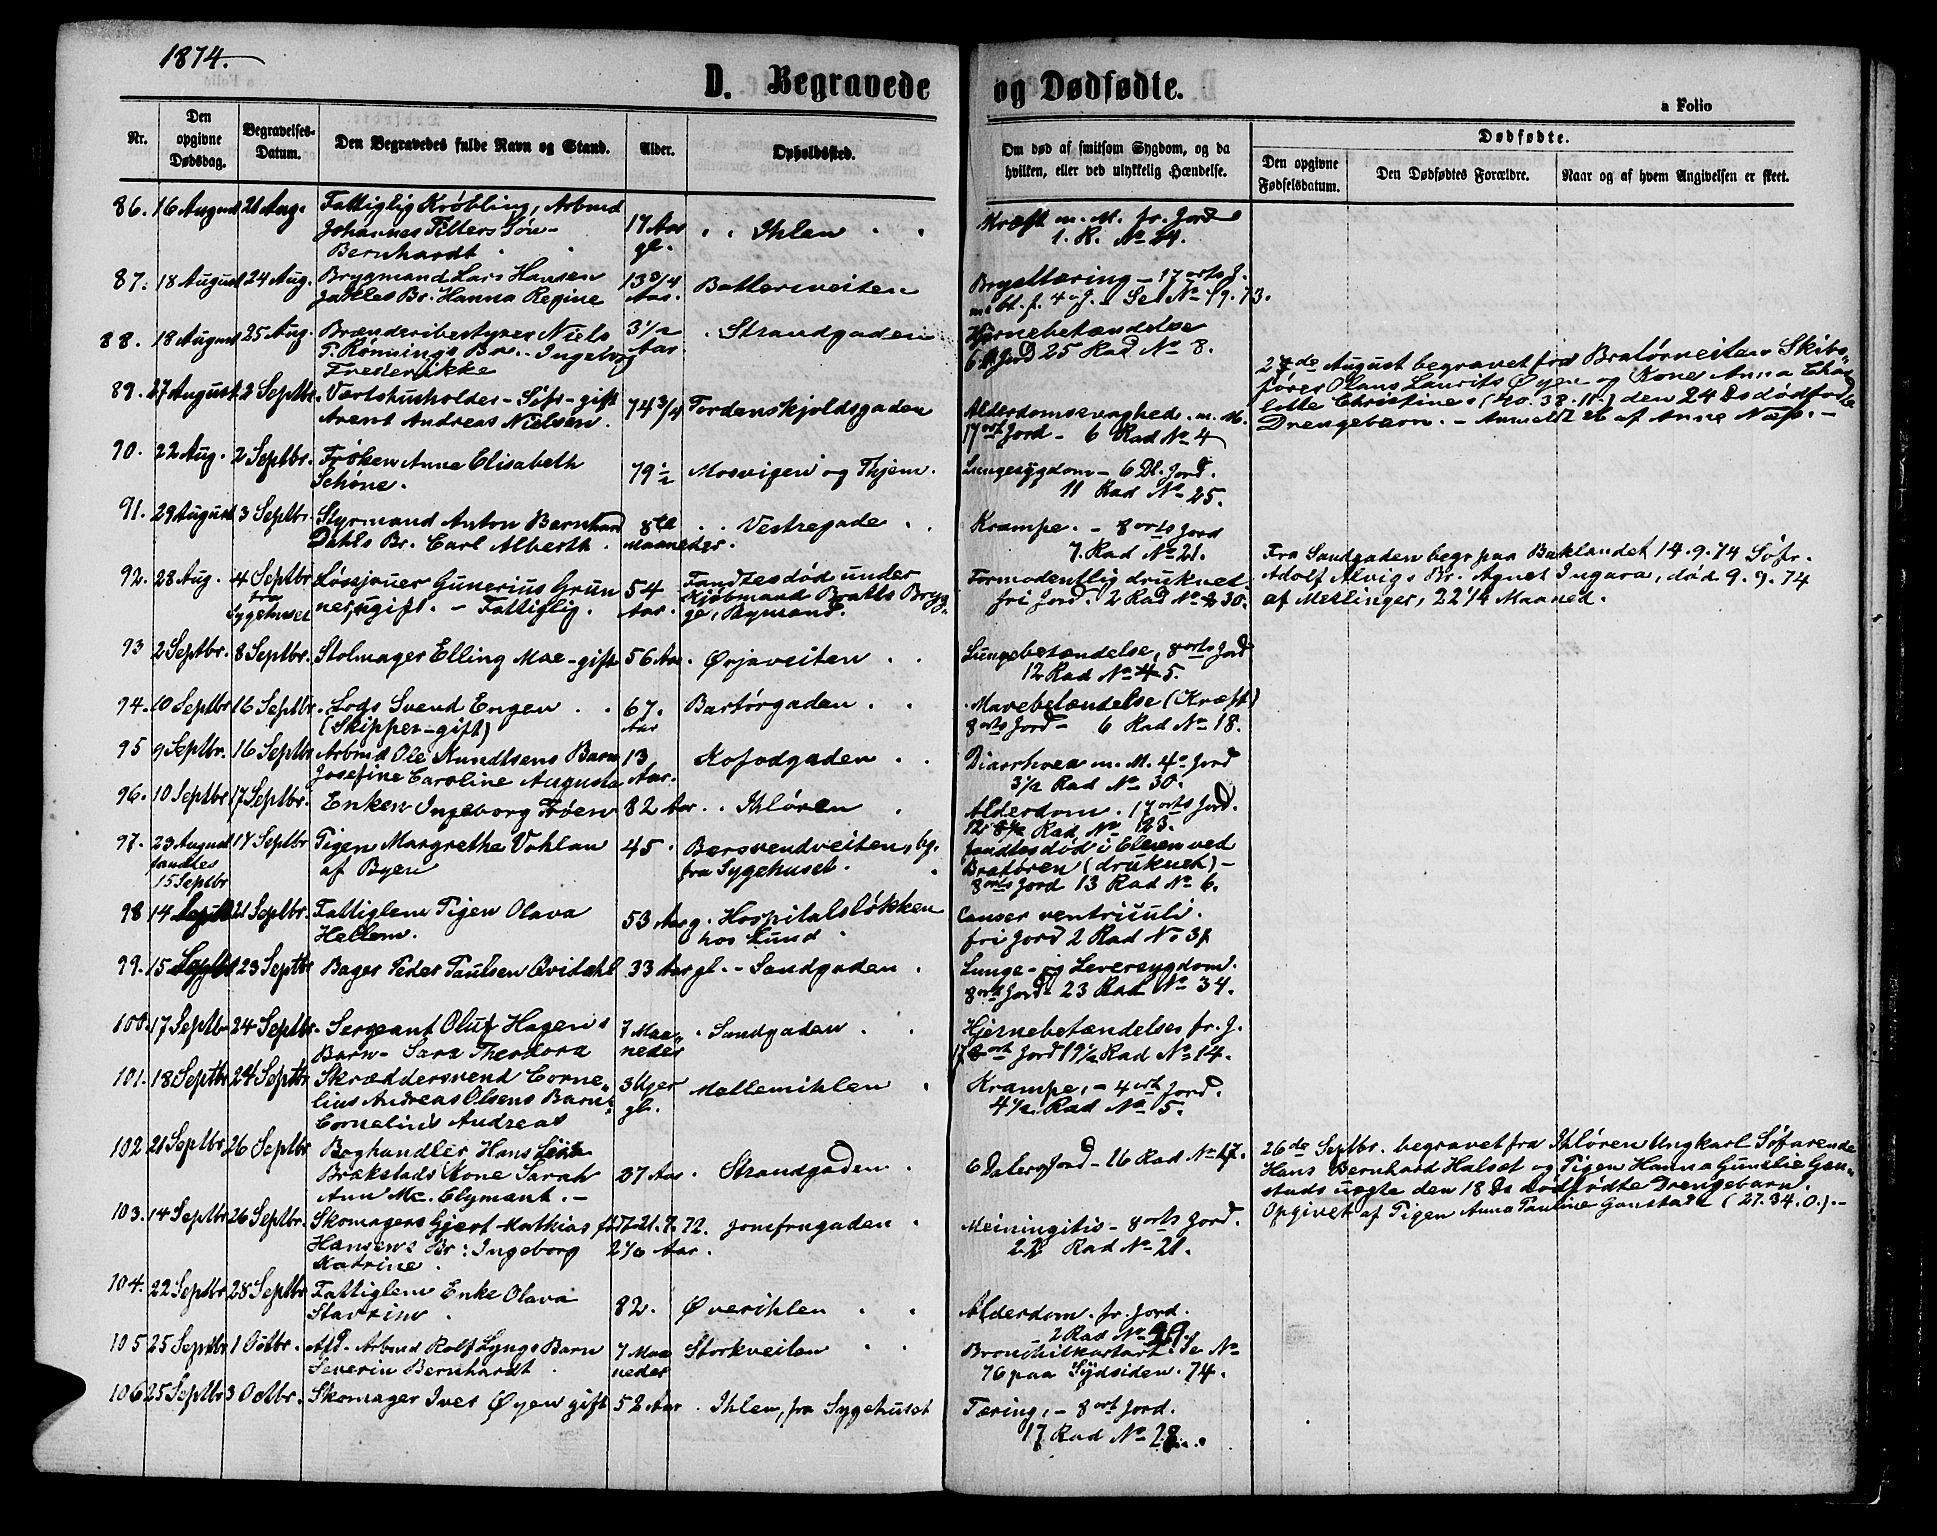 1874.
D. Begravede og Dødfødte.
a Folio
Nr.
Den opgivne Dødsdag.
Begravelses-Datum.
Den Begravedes fulde Navn og Stand.
Alder.
Opholdssted.
Om død af smitsom Sygdom, og da hvilken, eller ved ulykkelig Hændelse.
Dødfødte.
Den opgivne Fødselsdatum.
Den Dødfødtes Forældre.
Naar og af hvem Angivelsen er skeet.
86. 16 August 21 Aug. Fattiglig Krøbling, Arbmd 17 Aar Ihlen Kræft m. M. fr. Jord
Johannes Petters Søn gl. 1. R. No 24.
Bernhardt
87. 18 August 24 Aug. Brygmand Lars Hansen 13 3/4 Aar. Bakkesveiten Brysttæring - 17 orts J.
Br. Hanna Regine Se No 79. 73.
88. 18 August 25 Aug. Brænderibestyrer Niels 3 1/2 Aar Strandgaden Hjernebetændelse
P. Rønnings Br. Ingeborg 6 Jord 25 Rad No 8.
Frederikke
89. 27 August 2 Septbr. Værtshusholder - gift 74 3/4 Tordenskjoldsgaden Alderdomssvaghed m. M.
Arent Andreas Nielsen. 17 ort Jord - 6 Rad No 4
27de August begravet fra Bratørveiten Skibs-
fører Olaus Laurits Øyen og Kone Anna Char
lotte Christines (40. 38. 11.) den 24 Ds dødfødte
Drengebarn. - Anmeldt 26 af Anne Næss. -
90. 22 Aug. 2 Septbr. Frøken Anne Elisabeth 79 1/2 Mosvigen og Thjem. Lungesygdom - 6 Dl. Jord.
Schøne. 11 Rad No 25.
91. 29 August 3 Septbr. Styrmand Anton Bernhard 8 Maaneder. Vestregade Krampe. - 8 orts Jord
Dahls Br. Carl Alberth. 7. Rad No 21.
92. 28 Aug. 4 Septbr fra Sygehuset Løssjouer Gunerius Grun 54 Aar. Fandtes død under Formodentlig druknet
ner, ugift. - Fattiglig. Kjøbmand Bratts Bryg fri Jord. 2 Rad No 30.
ge, Bymand.
Fra Sandgaden begr paa Baklandet 14. 9. 74 Søfr.
Adolf Alvigs Br. Agnet Ingara, død 9. 9. 74
af Meslinger, 22 1/4 Maaned.
93 2 Septbr. 8 Septbr. Stolmager Elling Moe - gift 56 Aar. Ørjaveiten Lungebetændelse, 8 orts Jord
12 Rad No 5.
94. 10 Septbr 16 Septbr. Lods Svend Engen 67. Aar Bartørgaden Mavebetændelse (Kræft)
(Skipper - gift) 8 orts Jord - 6 Rad No 18.
95 9 Septbr. 16 Septbr Arbmd Ole Knudtsens Barn 13 Aar. Kofodgaden Diaorhoea m. M. 4 o Jord
Josefine Caroline Augusta 3 1/2 Rad No 30.
96. 10 Septbr 17 Septbr. Enken Ingeborg Frøen 82 Aar Ihløren Alderdom. 17 orts Jord.
Rad No 123.
97. 23 August 18 Septbr Pigen Margrethe Vohlan 45 Bersvendveiten, bg. fandtes død i Elven ved
fandtes 15 Septbr af Byen fra Sygehuset. Bratøren (druknet) -
8 orts Jord 13 Rad No 6.
98 14 Septbr 21 Septbr. Fattiglem Pigen Olava 53 Aar g. Hospitalsløkken Canser ventriculi.
Hellem. hos Lund fri Jord 2 Rad No 31
99. 15 Septbr 23 Septbr Bager Peder Paulsen Qvidahl 33 Aar gl. - Sandgaden. Lunge- og Leversygdom.
8 ort Jord - 23 Rad No 34.
100. 17 Septbr 24 Septbr. Sergeant Oluf Hagens 7 Maaneder Sandgaden Hjernebetændelse fr. J.
Barn - Sara Theodora 17 ort Jord 19 1/2 Rad No 14.
101. 18 Septbr 24 Septbr Skræddersvend Corne- 3 Uger gl. Mellemihlen Krampe, - 4 ort Jord.
lius Andreas Olsens Barn 4 1/2 Rad No 5.
Cornelius Andreas
102 21 Septbr 26 Septbr Boghandler Hans 37 Aar Strandgaden 6 Dalers Jord - 26 Rad No 17.
Brækstads Kone Sarah
Ann Mc. Clymant. -
26de Septbr. begravet fra Ihløren Ungkarl Søfarende
Hans Bernhard Halset og Pigen Hanna Gunelie Gan-
stads uægte den 18 Ds dødfødte Drengebarn.
Opgivet af Pigen Anna Pauline Ganstad (27. 34. 0.). -
103. 14 Septbr 26 Septbr. Skomagers Gjert Mathias født 21. 7. 72. Jomfrugaden Meiningitis - 8 orts Jord.
Hansens Br: Ingeborg 2 1/6 Aar. 22 Rad No 21.
Katrine.
104. 22 Septbr 28 Septbr Fattiglem Enke Olava 82. Øverihlen Alderdom. fr. Jord.
2 Rad No 29.
105 25 Septbr 1 Octbr. Arbmd Rolf Lyngs Barn 7 Maaneder Storkveiten Bronchitkartarr. Se No
Severin Bernhardt 76 paa Sydsiden. 74.
106 25 Septbr 3 Octbr. Skomager Iver Øyen gift 52 Aar Ihlen, fra Sygehuset Tæring, - 8 ort Jord.
17 Rad No 28.